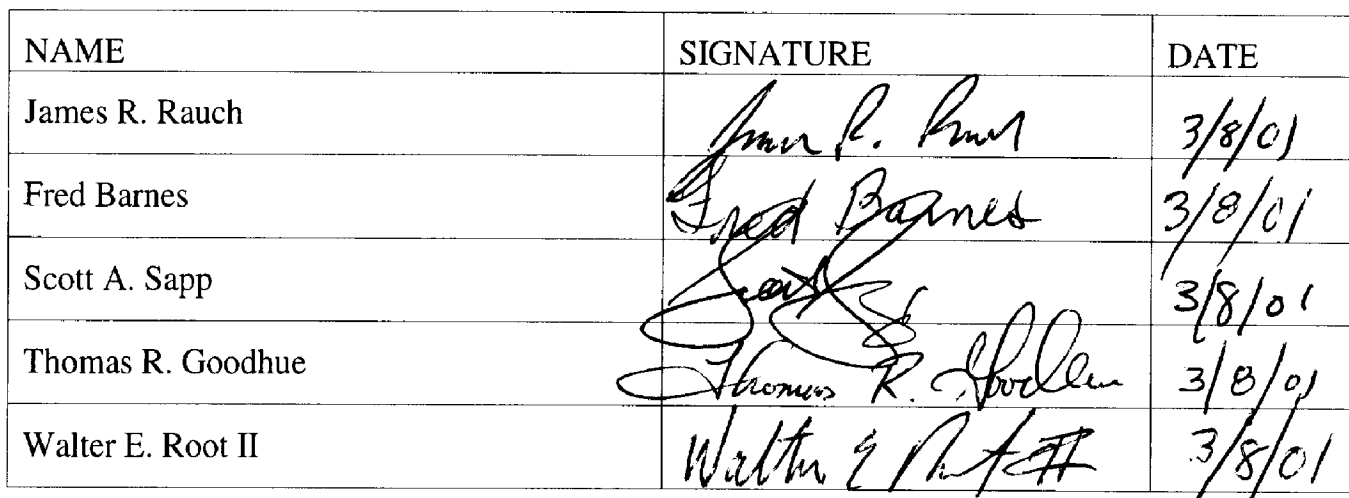 NAME SIGNATURE DATE
James R. Rauch James R. Rauch 3/8/01
Fred Barnes Fred Barnes 3/8/01
Scott A. Sapp Scott 3/8/01
Thomas R. Goodhue Thomas R. Goodhue 3/8/01
Walter E. Root II Walter E Root II 3/8/01